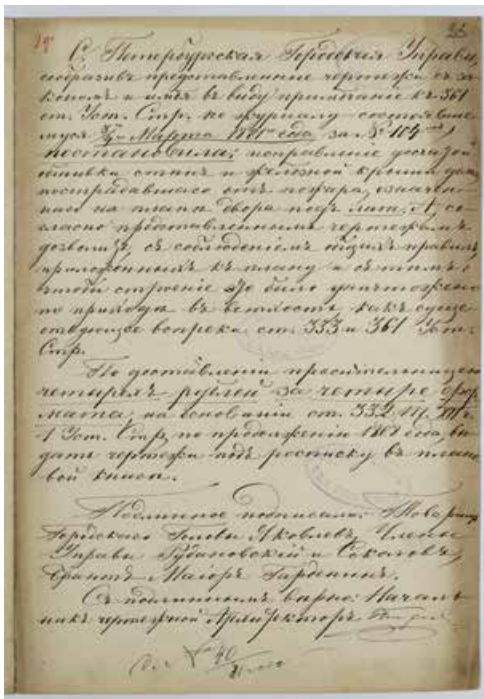 С. Петербургская Городская Управа,
сообразивъ представленные чертежи съ за-
кономъ и имѣя въ виду примѣчаніе къ 361
ст. Уст. Стр. по журналу состоявше-
муся Марта года за № 104
постановила: исправленіе досчатой
обшивки стѣнъ и желѣзной крыши дома
пострадавшаго отъ пожара, означен-
наго на планѣ двора подъ лит. А, со-
гласно представленнымъ чертежамъ
дозволить, съ соблюденіемъ общихъ правилъ,
приложенныхъ къ плану и съ тѣмъ,
чтобы строеніе это было уничтожено
по приходѣ въ ветхость, какъ суще-
ствующее вопреки ст. 353 и 361 Уст.
Стр.
По доставленіи просительницею
четырехъ рублей за четыре фор-
мата, на основаніи ст. 332
1 Уст. Стр. по продолженію года, вы-
дать чертежи подъ росписку въ плано-
вой книгѣ.
Подлинное подписали: Товарищъ
Городскаго Головы Яковлевъ, Члены
Управы и Соколовъ,
Брантъ Маіоръ
Съ подлиннымъ вѣрно: Началь-
никъ чертежной Архитекторъ